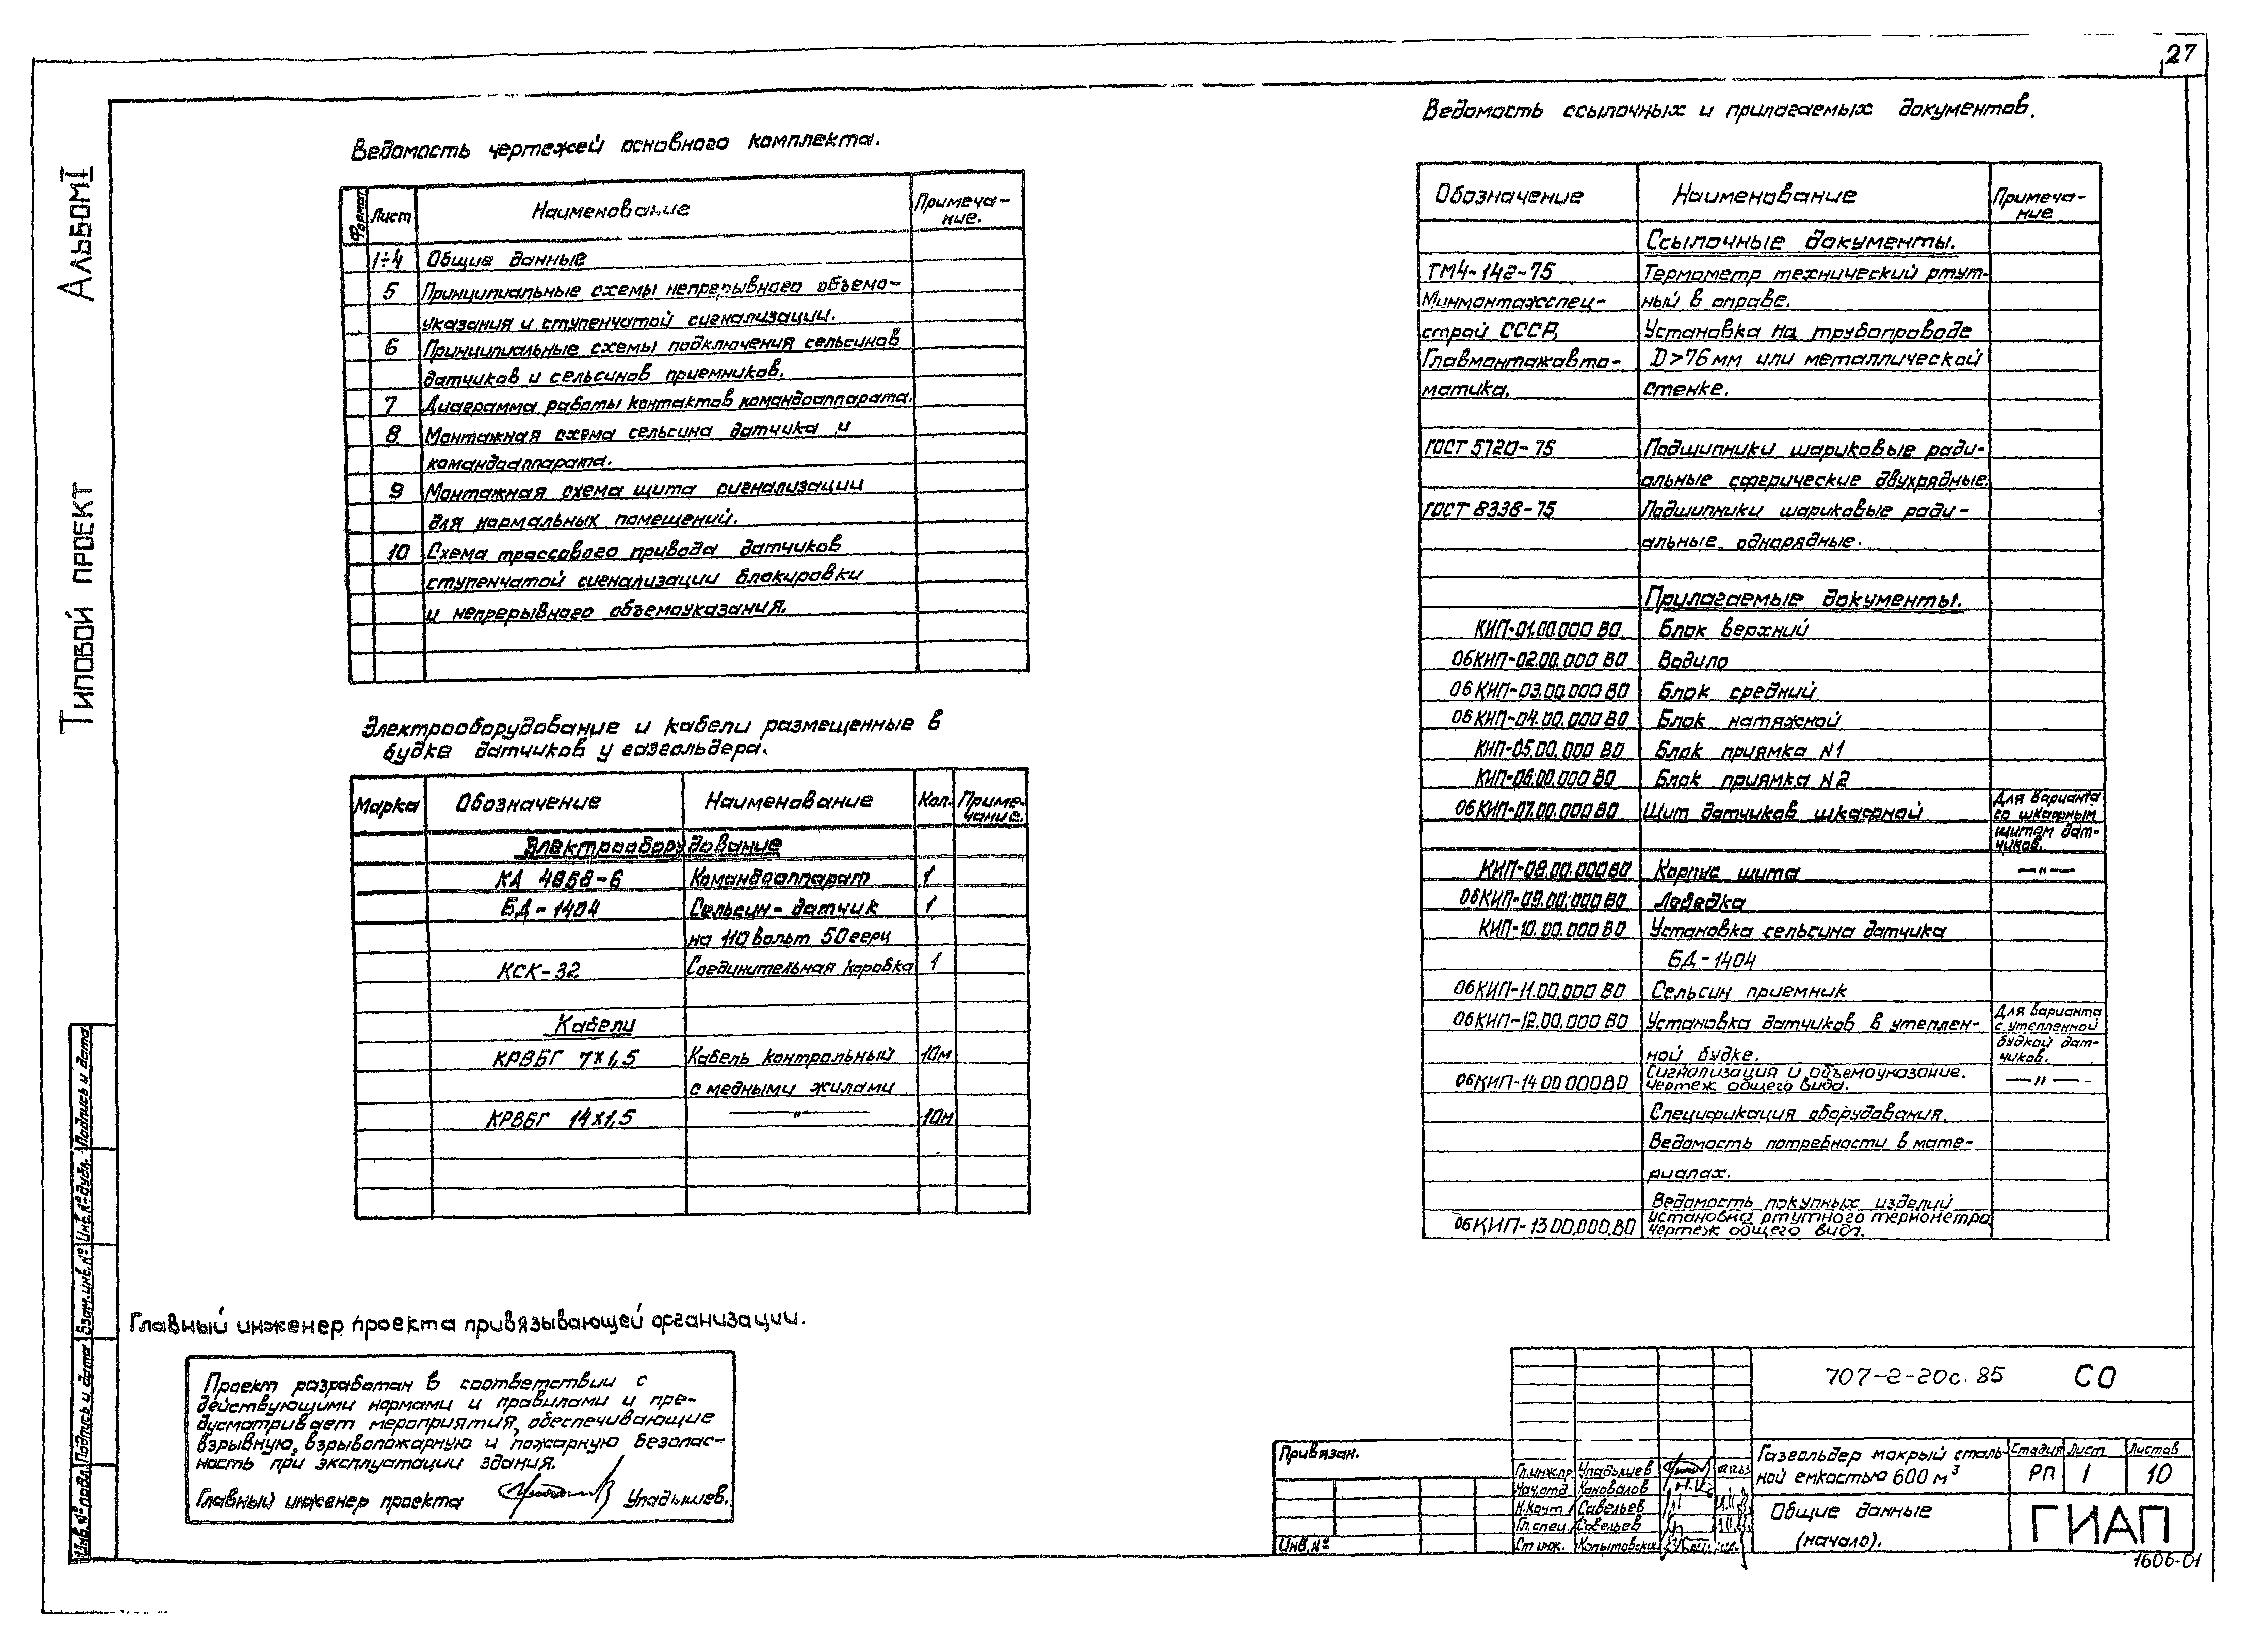 27
Альбом I
Типовой проект
Ведомость чертежей основного комплекта.
Формат Лист Наименование Примеча-
ние.
1÷4 Общие данные
5 Принципиальные схемы непрерывного объемо-
указания и ступенчатой сигнализации.
6 Принципиальные схемы подключения сельсинов
датчиков и сельсинов приемников.
7 Диаграмма работы контактов командоаппарата.
8 Монтажная схема сельсина датчика и
командоаппарата.
9 Монтажная схема щита сигнализации
для нормальных помещений.
10 Схема трассового привода датчиков
ступенчатой сигнализации блокировки
и непрерывного объемоуказания.
Электрооборудование и кабели размещенные в
будке датчиков у газгольдера.
Марка Обозначение Наименование Кол. Приме-
чание.
Электрооборудование
КА 4658-6 Командоаппарат 1
БД-1404 Сельсин-датчик 1
на 110 вольт 50 герц
КСК-32 Соединительная коробка 1
Кабели
КРВБГ 7×1,5 Кабель контрольный 10м
с медными жилами
КРВБГ 14×1,5 —"— 10м
Ведомость ссылочных и прилагаемых документов.
Обозначение Наименование Примеча-
ние
Ссылочные документы.
ТМ4-142-75 Термометр технический ртут-
Минмонтажспец- ный в оправе.
строй СССР, Установка на трубопроводе
Главмонтажавто- D>76 мм или металлической
матика. стенке.
ГОСТ 5720-75 Подшипники шариковые ради-
альные сферические двухрядные.
ГОСТ 8338-75 Подшипники шариковые ради-
альные однорядные.
Прилагаемые документы.
КИП-01.00.000 ВО. Блок верхний
06КИП-02.00.000 ВО Водило
06 КИП-03.00.000 ВО Блок средний
06 КИП-04.00.000 ВО Блок натяжной
КИП-05.00.000 ВО Блок приямка N1
КИП-06.00.000 ВО Блок приямка N2
06 КИП-07.00.000 ВО Щит датчиков шкафной Для варианта
со шкафным
щитом дат-
чиков.
КИП-08.00.000 ВО Корпус щита —"—
06КИП-09.00.000 ВО Лебедка
КИП-10.00.000 ВО Установка сельсина датчика
БД-1404
06КИП-11.00.000 ВО Сельсин приемник
06КИП-12.00.000 ВО Установка датчиков в утеплен- Для варианта
с утепленной
ной будке. будкой дат-
чиков.
06КИП-14 00 000 ВО Сигнализация и объемоуказание. —"—
Чертеж общего вида.
Спецификация оборудования.
Ведомость потребности в мате-
риалах.
Ведомость покупных изделий
06КИП-13 00.000.ВО установка ртутного термометра
чертеж общего вида.
Главный инженер проекта привязывающей организации.
Проект разработан в соответствии с
действующими нормами и правилами и пре-
дусматривает мероприятия, обеспечивающие
взрывную, взрывопожарную и пожарную безопас-
ность при эксплуатации здания.
Главный инженер проекта Упадышев.
Инв.№ подл. Подпись и дата Взам.инв.№ Инв.№ дубл. Подпись и дата
Привязан.
Инв.№
Гл.инж.пр. Упадышев
Нач.отд Коновалов
Н.конт. Савельев
Гл.спец. Савельев
Ст инж. Копытовский
707-2-20с.85 СО
Газгольдер мокрый сталь-
ной емкостью 600 м³
Стадия Лист Листов
РП 1 10
Общие данные
(начало).
ГИАП
1606-01